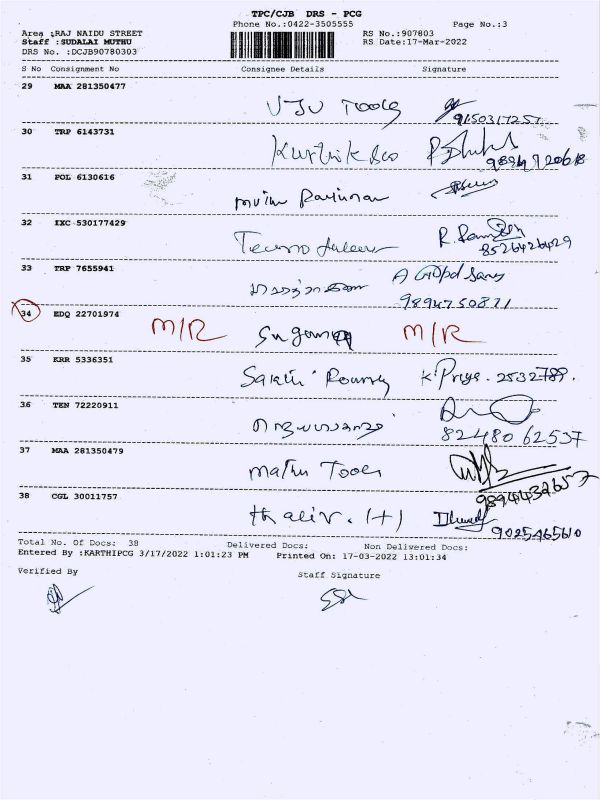 TPC/CJB DRS - PCG
Phone No.:0422-3505555 Page No.:3
Area :RAJ NAIDU STREET RS No.:907803
Staff :SUDALAI MUTHU RS Date:17-Mar-2022
DRS No. :DCJB90780303
S No Consignment No Consignee Details Signature
29 MAA 281350477
VJU Tools 9150317257
30 TRP 6143731
31 POL 6130616
32 IXC 530177429
8526426429
33 TRP 7655941
9894750871
34 EDQ 22701974
M/R M/R
35 KRR 5336351
Sakthi K. Priya. 2532789.
36 TEN 72220911
82480 62537
37 MAA 281350479
Mathu Tools
38 CGL 30011757
9025465610
Total No. Of Docs: 38 Delivered Docs: Non Delivered Docs:
Entered By :KARTHIPCG 3/17/2022 1:01:23 PM Printed On: 17-03-2022 13:01:34
Verified By Staff Signature